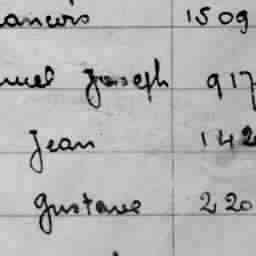 ancois 1509
uel Joseph 917
Jean 142
Gustave 220